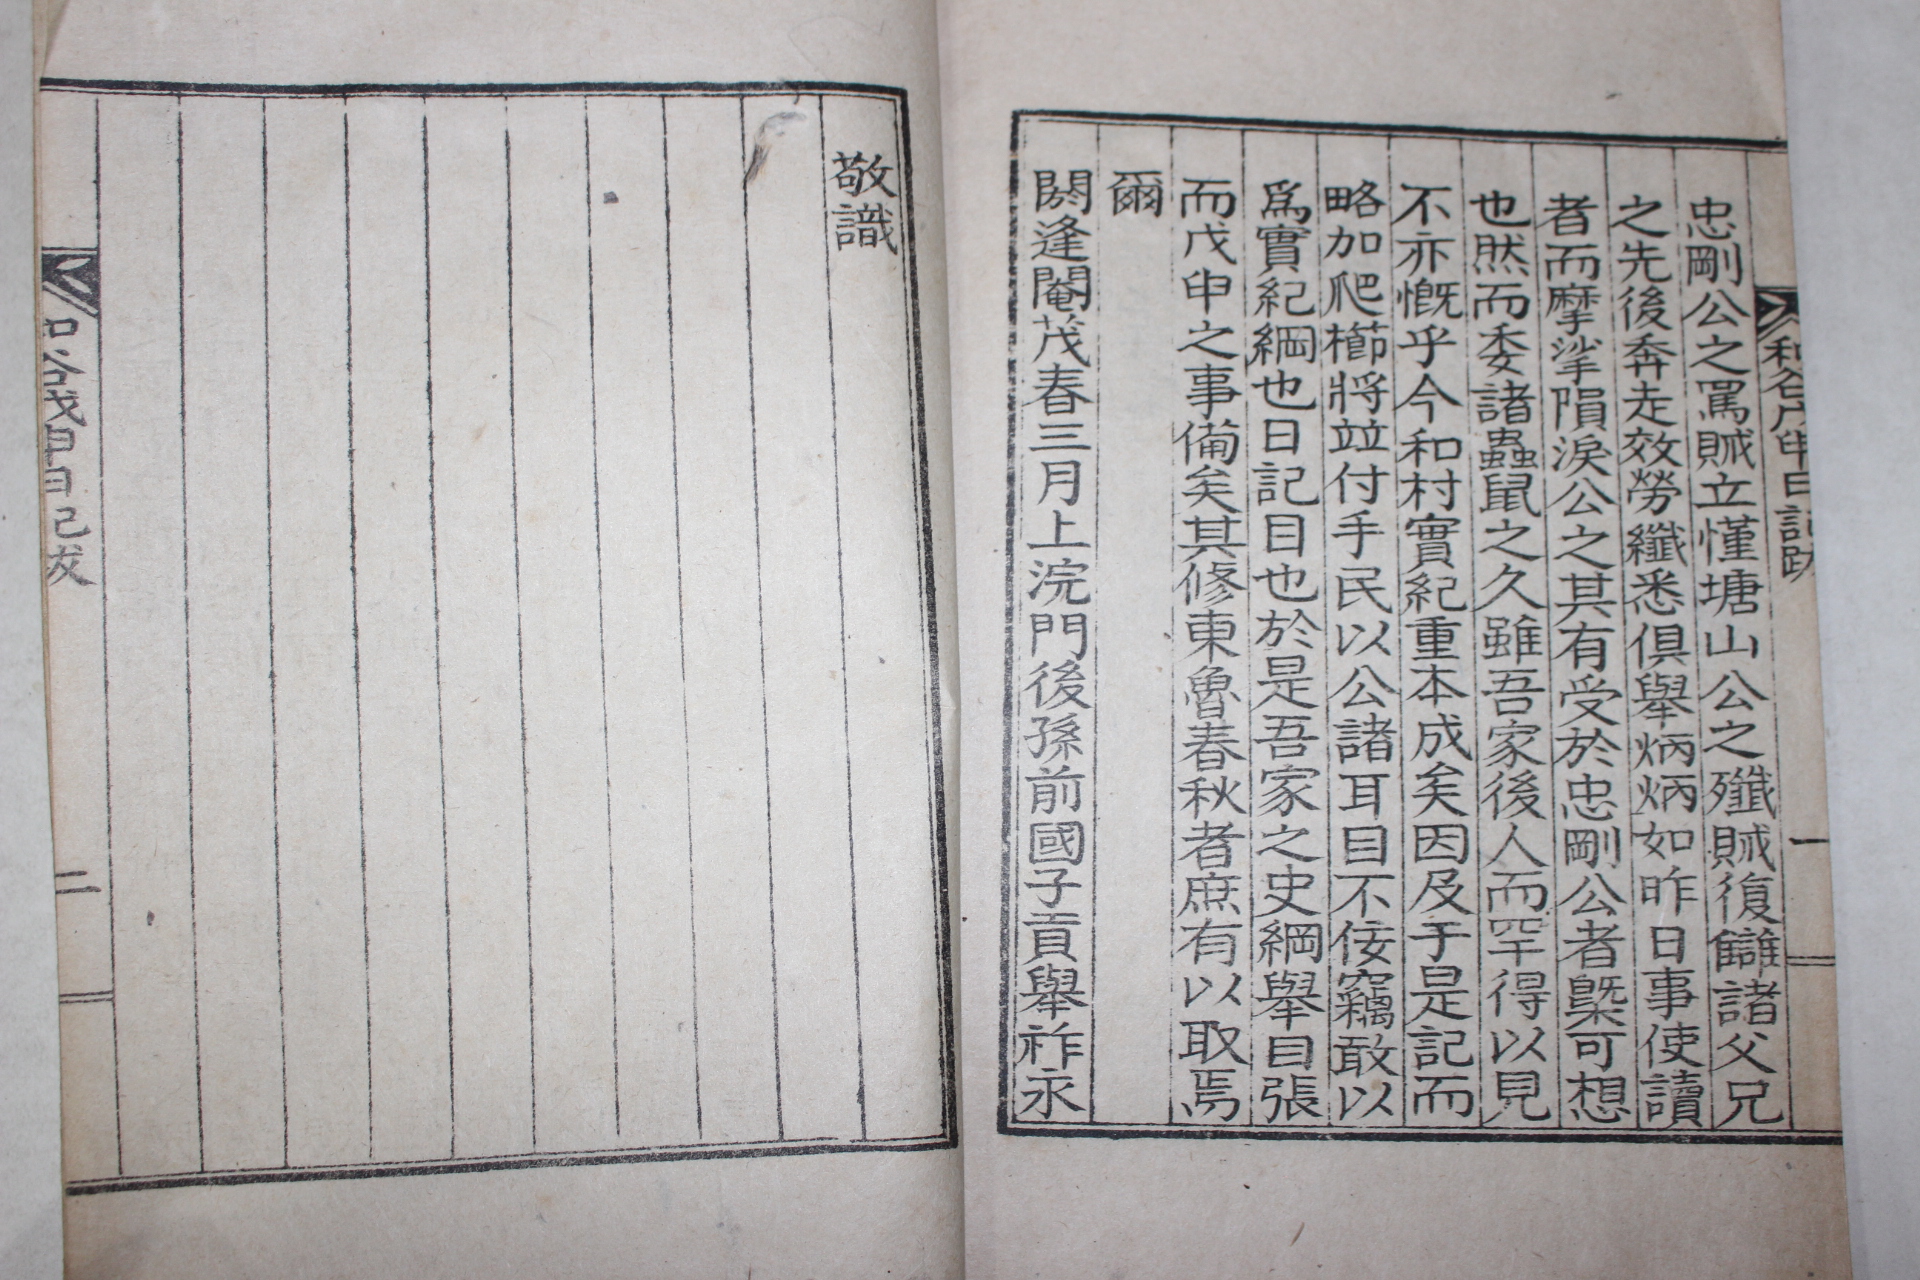 和谷戊申日記跋
一
忠剛公之罵賊立慬塘山公之殲賊復讎諸父兄
之先後奔走效勞纖悉俱舉炳炳如昨日事使讀
者而摩挲隕淚公之其有受於忠剛公者槩可想
也然而委諸蟲鼠之久雖吾家後人而罕得以見
不亦慨乎今和村實紀重本成矣因及于是記而
略加爬櫛將竝付手民以公諸耳目不佞竊敢以
爲實紀綱也日記目也於是吾家之史綱舉目張
而戊申之事備矣其修東魯春秋者庶有以取焉
爾
閼逢閹茂春三月上浣門後孫前國子貢舉祚永
敬識
和谷戊申日記跋
二